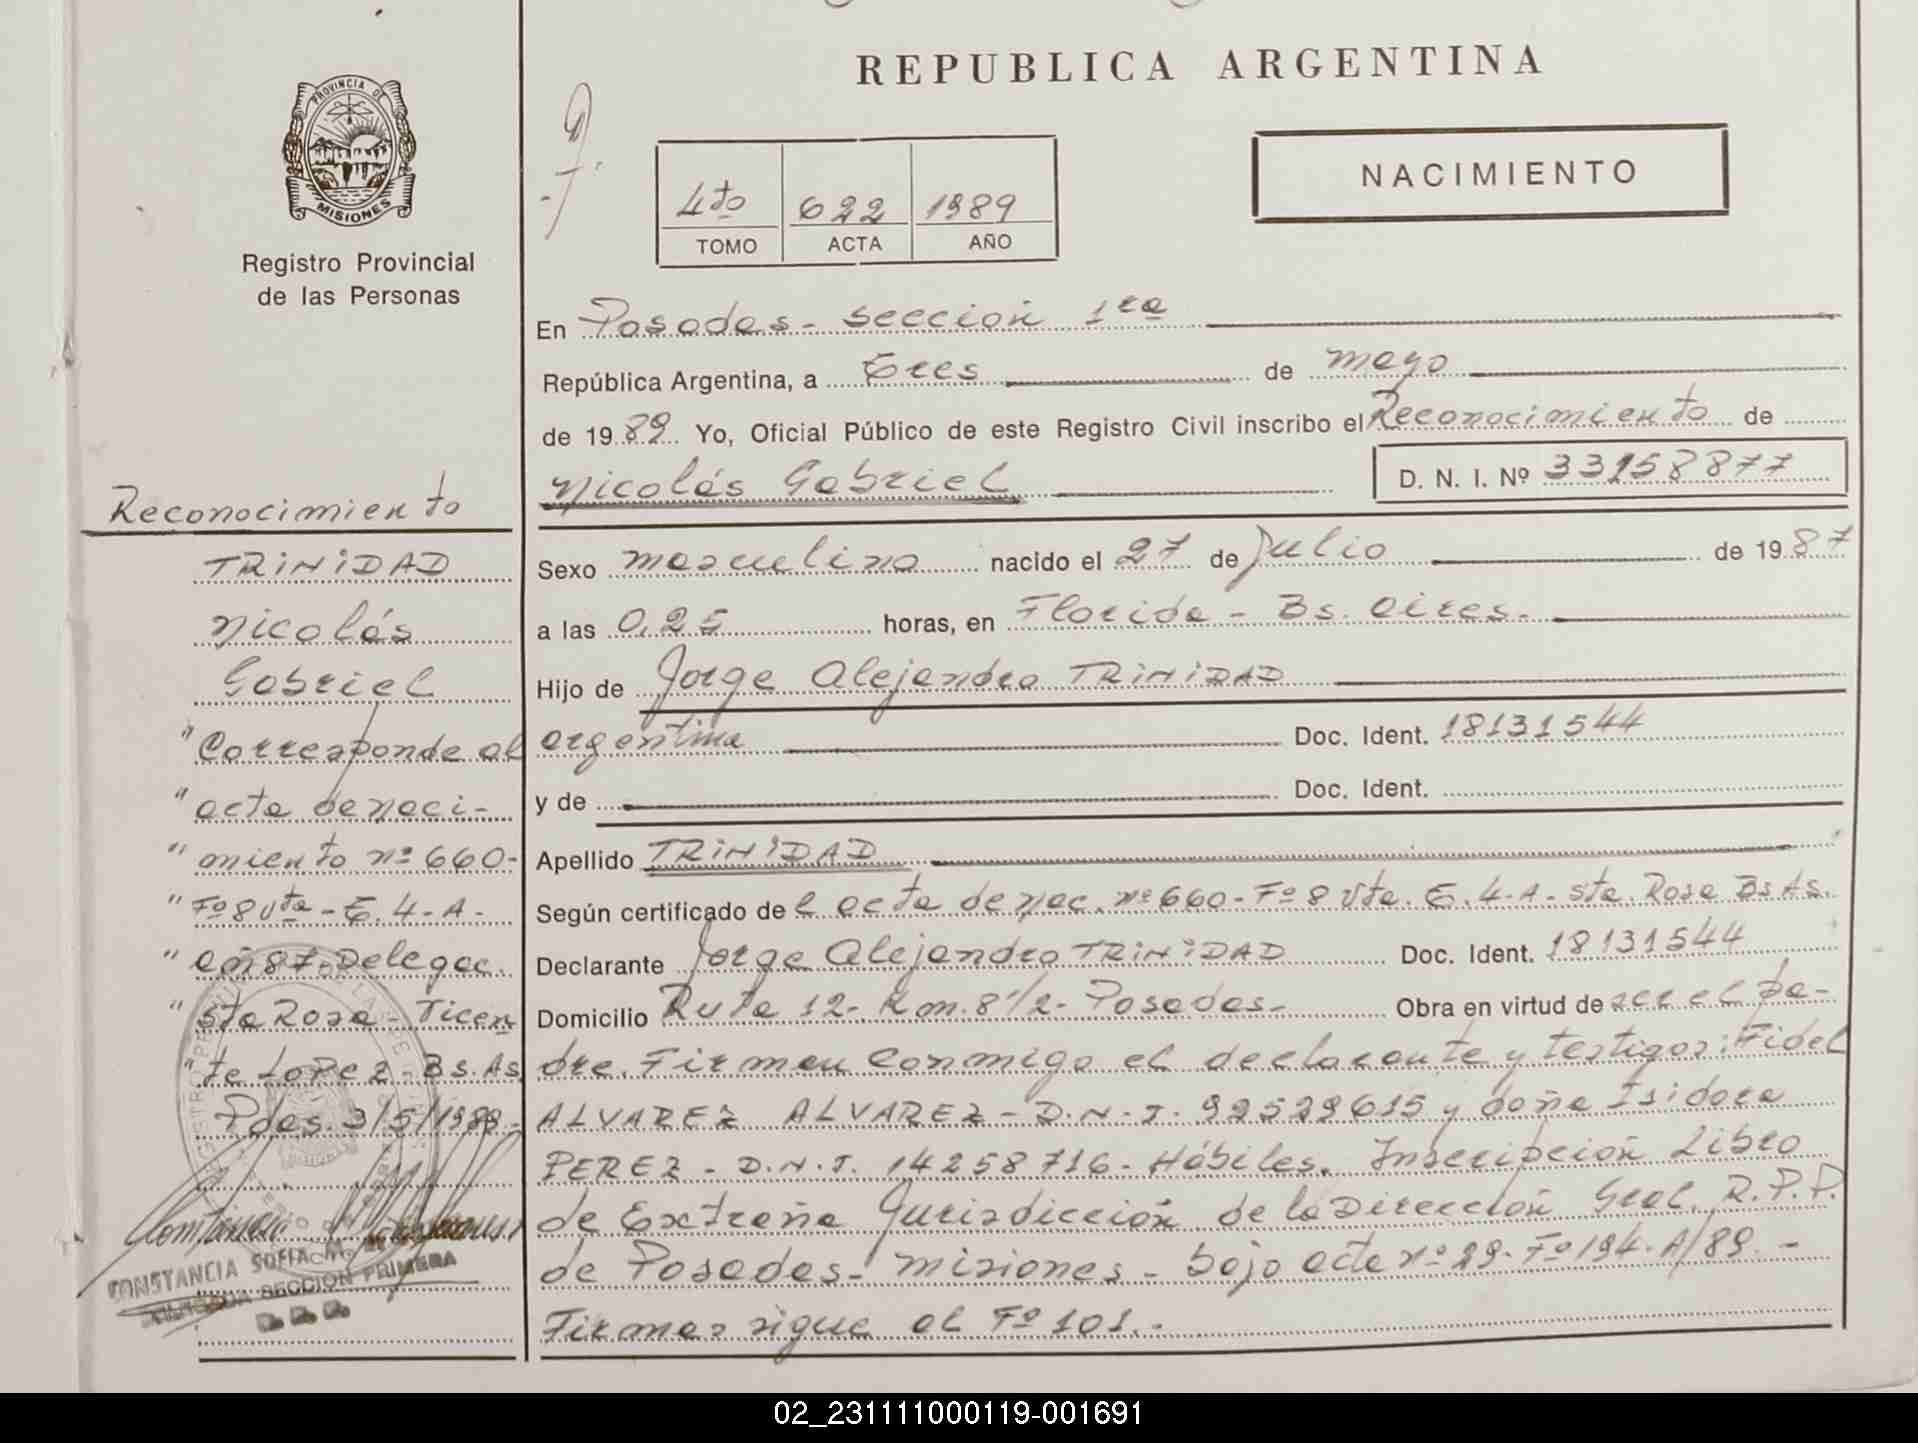 REPUBLICA ARGENTINA
PROVINCIA DE
MISIONES
Registro Provincial
de las Personas
4to 622 1989
TOMO ACTA AÑO
NACIMIENTO
En Posadas - sección 1ra
República Argentina, a tres de mayo
de 1989 Yo, Oficial Público de este Registro Civil inscribo el Reconocimiento de
Nicolás Gabriel D. N. I. Nº 33158877
Sexo masculino nacido el 27 de Julio de 1987
a las 0,25 horas, en Florida - Bs. aires.
Hijo de Jorge Alejandro TRINIDAD
argentina Doc. Ident. 18131544
y de Doc. Ident.
Apellido TRINIDAD
Según certificado del acta de nac. nº 660 - Fº 8 Vta. t. 4-A - Sta. Rosa Bs As.
Declarante Jorge Alejandro TRINIDAD Doc. Ident. 18131544
Domicilio Ruta 12 - Km. 8 1/2 - Posadas - Obra en virtud de ser el pa-
dre. Firman conmigo el declarante y testigos: Fidel
ALVAREZ ALVAREZ - D.N.I. 92529615 y doña Isidora
PEREZ - D.N.I. 14258716 - Hábiles. Inscripción Libro
de Extraña Jurisdicción de la Dirección Gral. R.P.P.
de Posadas - Misiones - bajo acta nº 29 - Fº 194 - A/89. -
Firmas sigue al Fº 101. -
Reconocimiento
TRINIDAD
Nicolás
Gabriel
"Corresponde al
"acta de naci-
"miento nº 660-
"Fº 8 Vta - t. 4-A-
"año 87 - Delegac.
"Sta Rosa - Vicen
"te LOPEZ - Bs. As
Pdas. 3/5/1989 -
CONSTANCIA SOFIA M.
SECCION PRIMERA
02_231111000119-001691